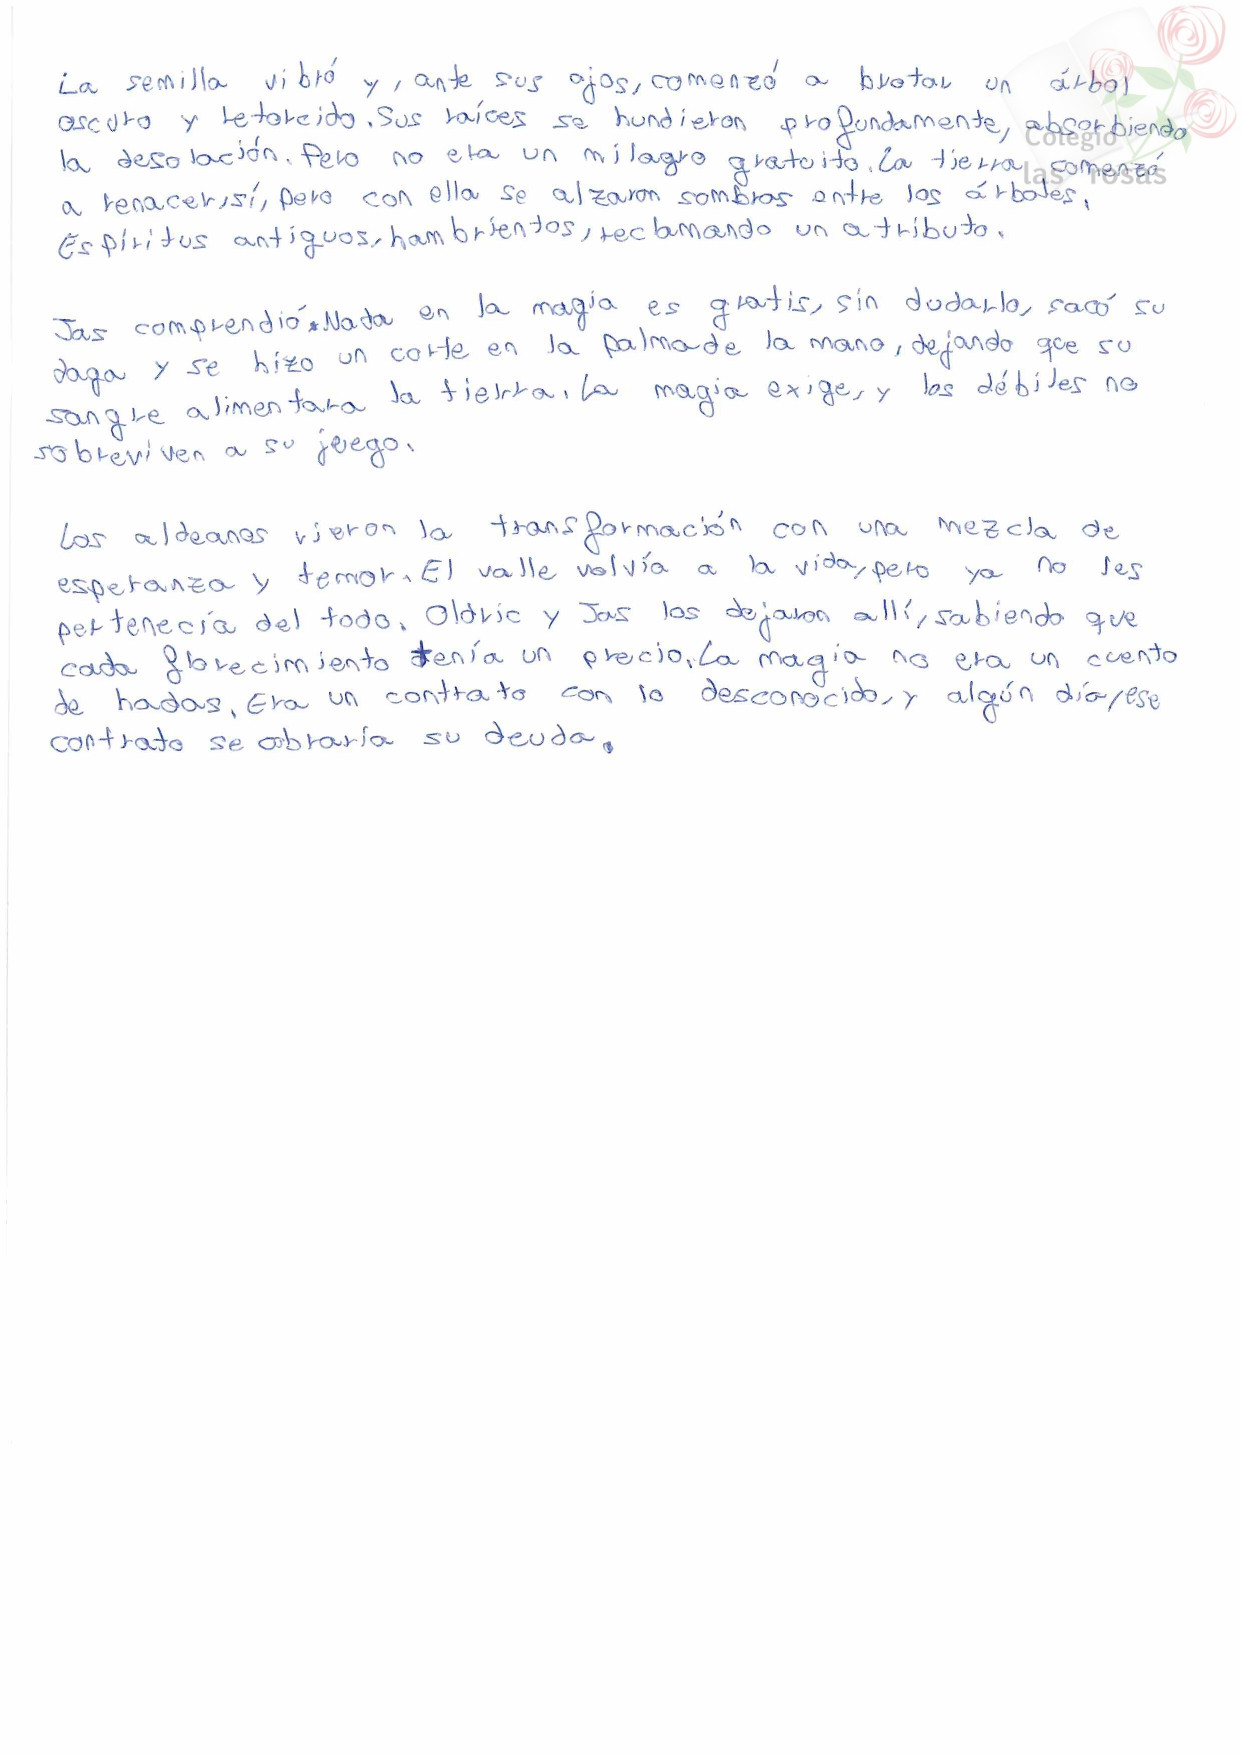 La semilla vibró y, ante sus ojos, comenzó a brotar un árbol
oscuro y retorcido. Sus raíces se hundieron profundamente, absorbiendo
Colegio
la desolación. Pero no era un milagro gratuito. La tierra comenzó
las rosas
a renacer, sí, pero con ella se alzaron sombras entre los árboles.
Espíritus antiguos, hambrientos, reclamando un atributo.
Jas comprendió. Nada en la magia es gratis, sin dudarlo, sacó su
daga y se hizo un corte en la palma de la mano, dejando que su
sangre alimentara la tierra. La magia exige, y los débiles no
sobreviven a su juego.
Los aldeanos vieron la transformación con una mezcla de
esperanza y temor. El valle volvía a la vida, pero ya no les
pertenecía del todo. Oldric y Jas los dejaron allí, sabiendo que
cada florecimiento tenía un precio. La magia no era un cuento
de hadas. Era un contrato con lo desconocido, y algún día, ese
contrato se cobraría su deuda.